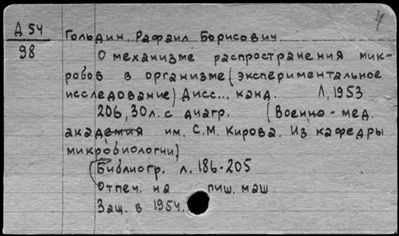 4
Д 54
98
Гольдин, Рафаил Борисович.
О механизме распространения мик-
робов в организме (экспериментальное
исследование) Дисс... канд. Л, 1953
206, 30 л. с диагр. (Военно-мед.
академия им. С.М. Кирова. Из кафедры
микробиологии)
Библиогр. л. 186-205
Отпеч. на пиш. маш.
Защ. в 1954.